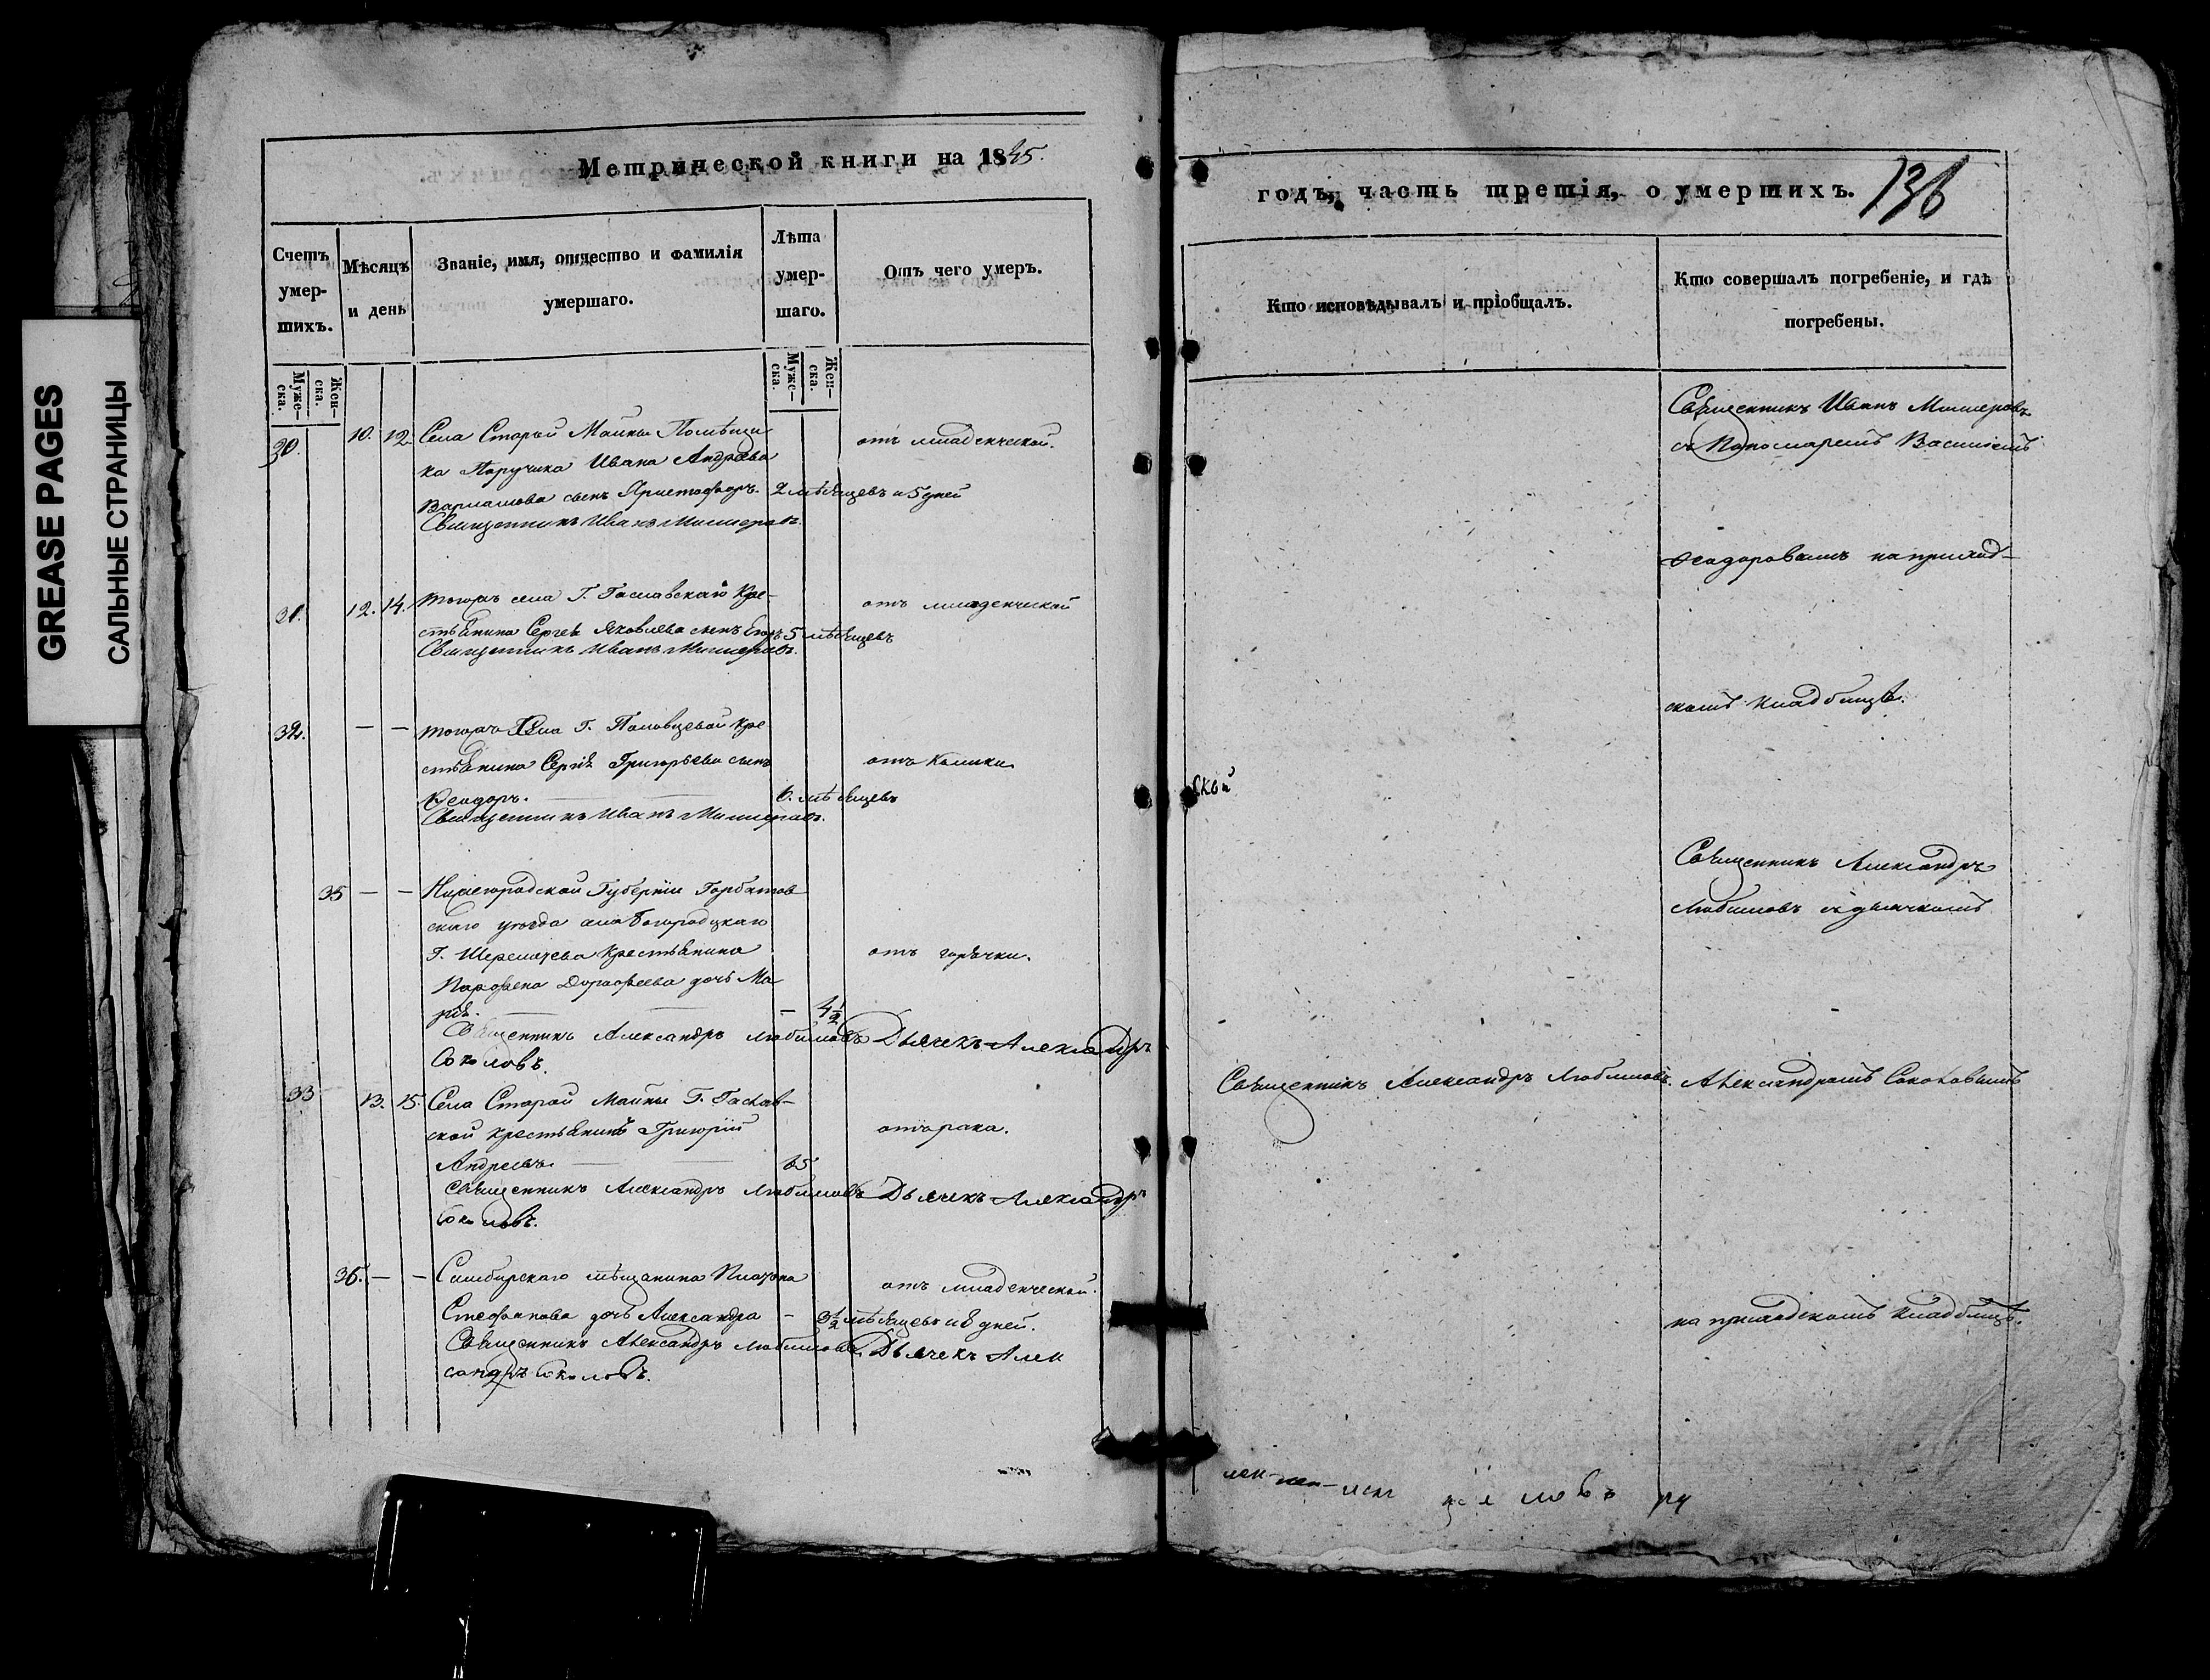 GREASE PAGES
САЛЬНЫЕ СТРАНИЦЫ
Метрической книги на 1845.
Счетъ умер-шихъ.
Мѣсяцъ и день
Званіе, имя, отчество и фамилія умершаго.
Лѣта умер-шаго.
Отъ чего умеръ.
Муже-ска.
Жен-ска.
Муже-ска.
Жен-ска.
30. 10. 12. Села Старой Майны Помѣщи
ка Поручика Ивана Андреева
отъ младенческой.
Варламова сынъ Христофоръ. 2 мѣсяцевъ и 5 дней
Священникъ Иванъ
31. 12. 14. тогожъ села Г. Кре-
отъ младенческой
стьянина Сергея Яковлева сынъ Егоръ 5 мѣсяцевъ
Священникъ Иванъ
32. — — тогожъ Села Г. Половцевой Кре
стьянина Сергѣя Григорьева сынъ
отъ колики
Ѳеодоръ. 6. мѣсяцевъ
Священникъ Иванъ
35 — — Нижегородской Губерніи Горбатов
скаго уѣзда села Богородскаго
Г. Шереметева Крестьянина
отъ горячки.
Парфена Дорофеева дочь Ма
рія. — 4½
Священникъ Александръ Любимовъ Дьячекъ Александръ
Соколовъ.
33 13. 15. Села Старой Майны Г.
ской крестьянинъ Григорій
отъ рака.
Андреевъ. 65
Священникъ Александръ Любимовъ Дьячекъ Александръ
Соколовъ.
36. — — Симбирскаго мѣщанина Платона
отъ младенческой.
Стефанова дочь Александра — 3½ мѣсяцевъ и 8 дней.
Священникъ Александръ Любимовъ. Дьячекъ Алек
сандръ Соколовъ.
годъ, часть третія, о умершихъ. 136
Кто исповѣдывалъ и пріобщалъ.
Кто совершалъ погребеніе, и гдѣ погребены.
Священникъ Иванъ
съ Пономаремъ Василіемъ
Ѳеодоровымъ на приход-
скомъ кладбищѣ.
ской
Священникъ Александръ
Любимовъ съ дьячкомъ
Священникъ Александръ Любимовъ. Александромъ Соколовымъ
на приходскомъ кладбищѣ.